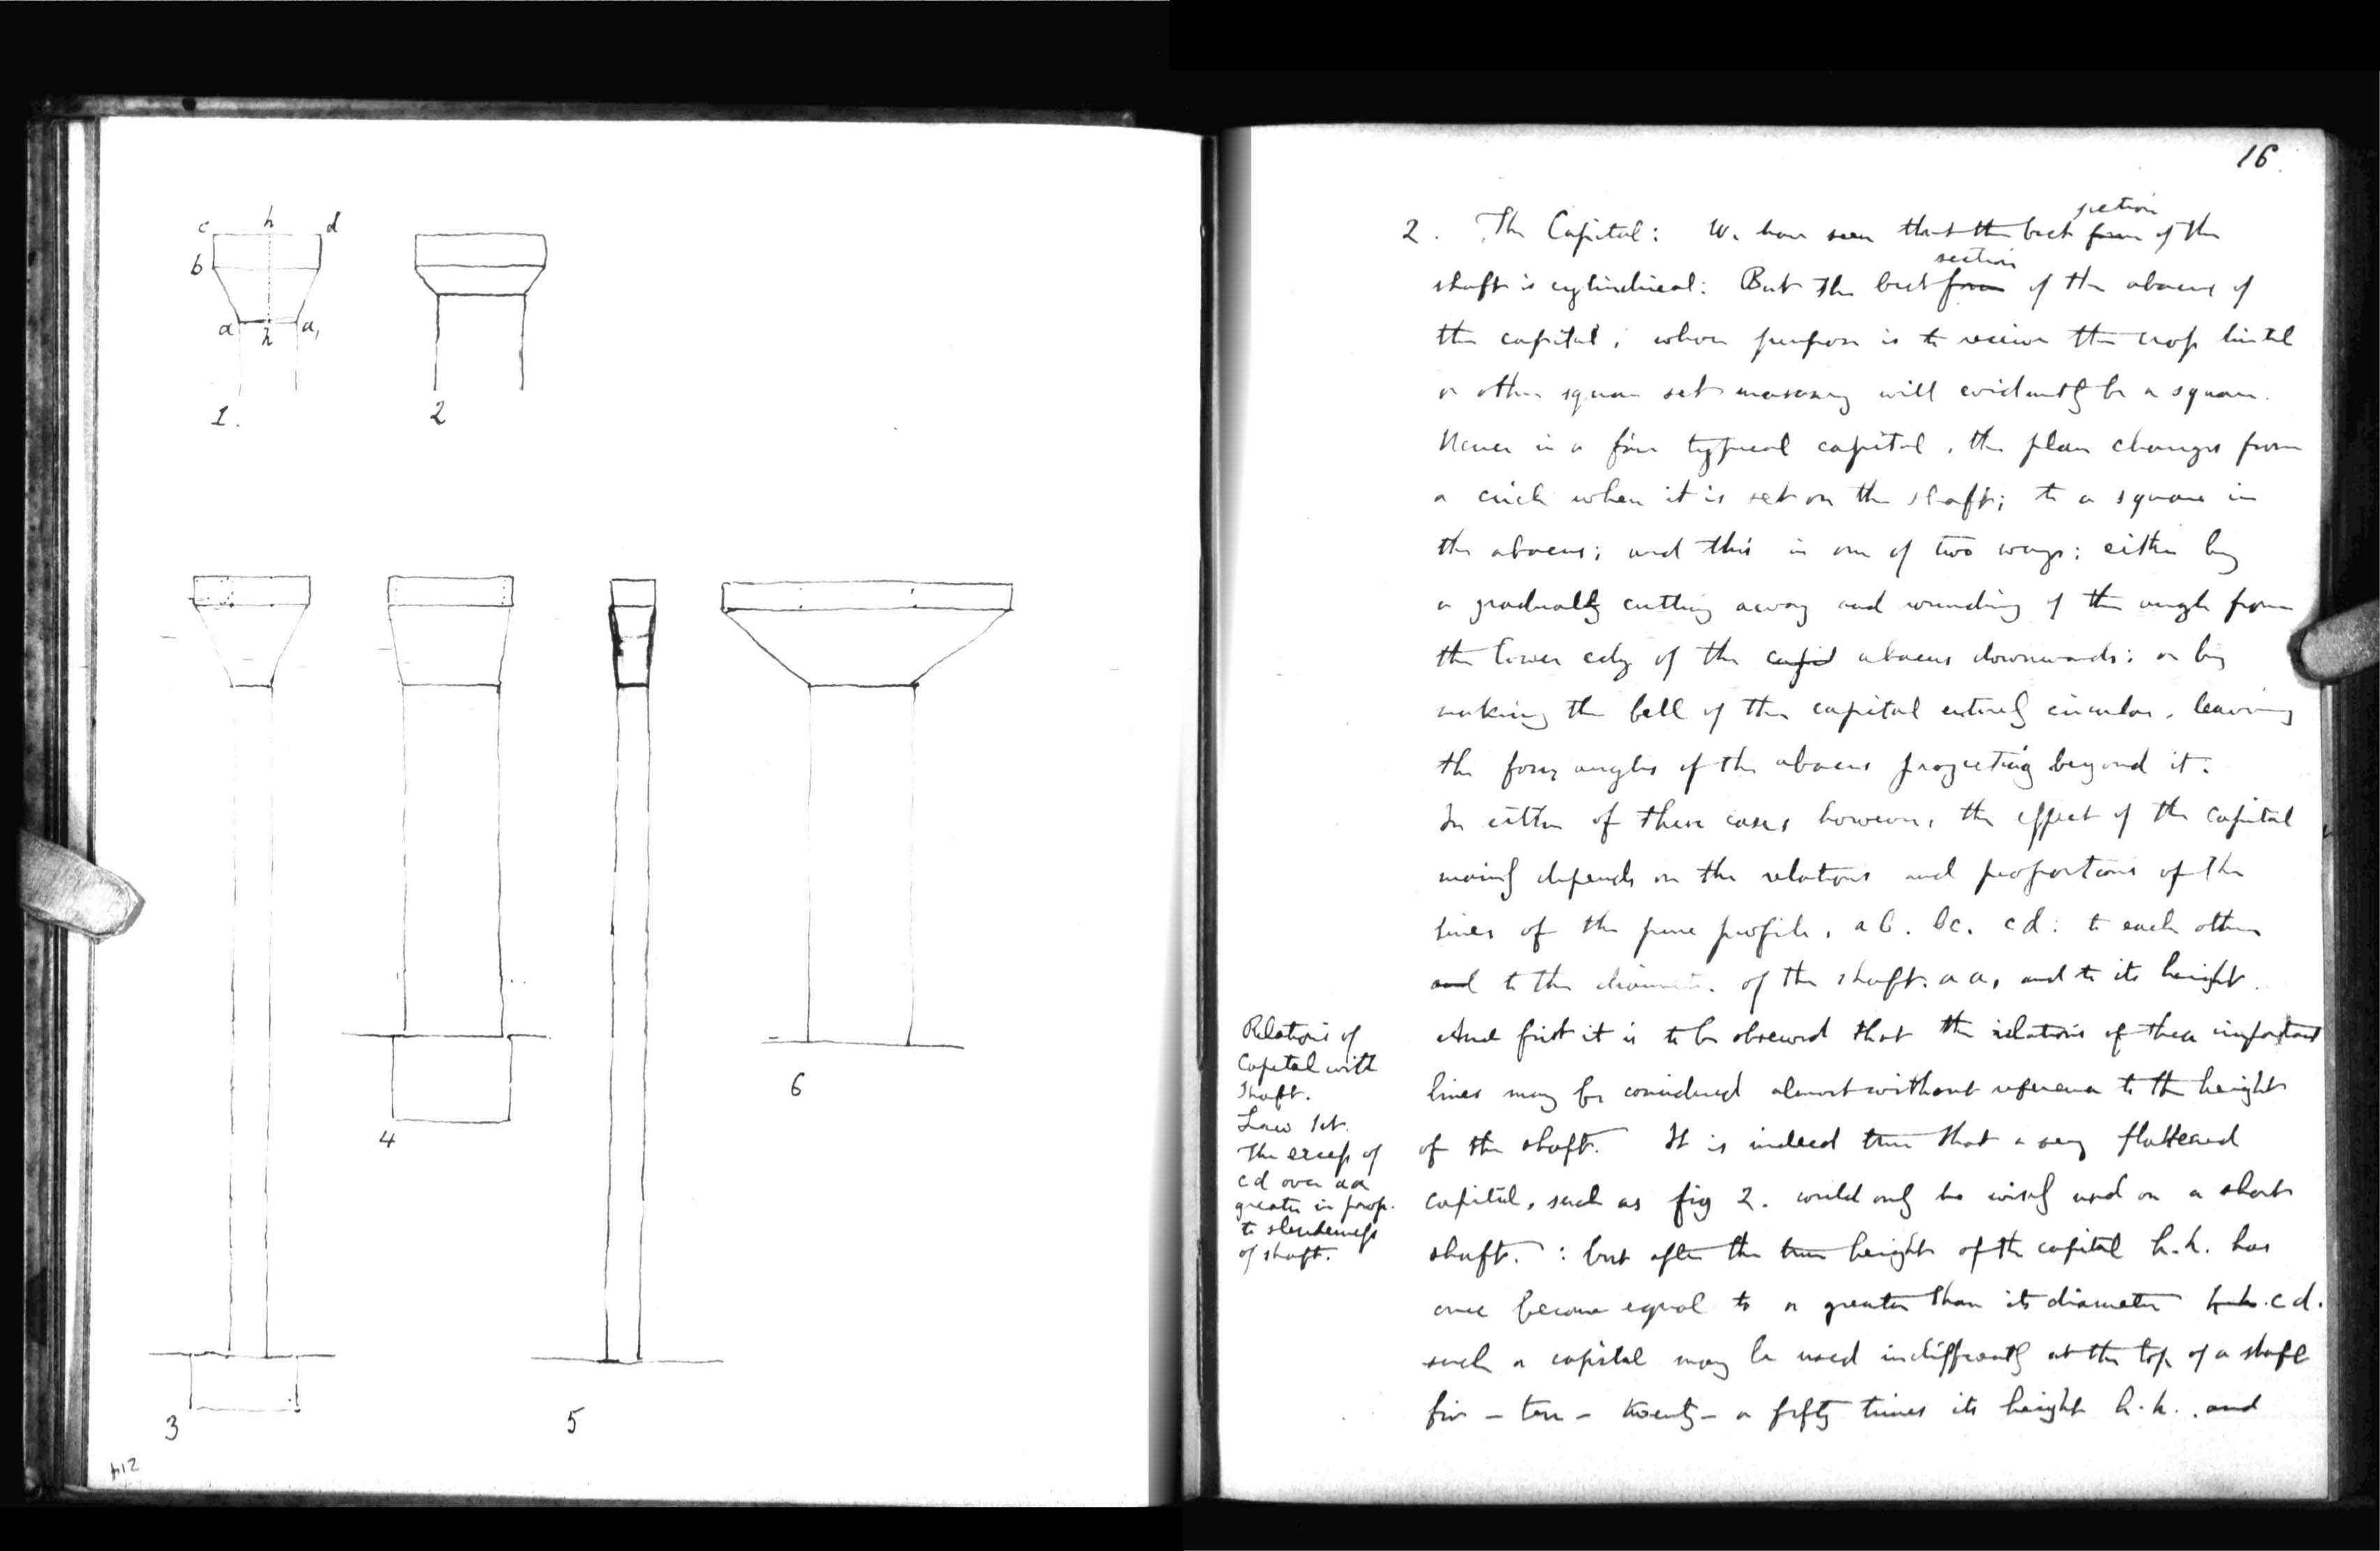 c h d
b
a h a,
1.
2
3
4
5
6
16
section
2. The Capital: We have seen that the best form of the
section
shaft is cylindrical: But the best form of the abacus of
the capital; whose purpose is to receive the cross lintel
or other square set masonry will evidently be a square.
Hence in a fine typical capital, the plan changes from
a circle when it is set on the shaft; to a square in
the abacus; and this in one of two ways: either by
a gradually cutting away and rounding of the angle from
the lower edge of the capid abacus downwards: or by
making the bell of the capital entirely circular, leaving
the four angles of the abacus projecting beyond it.
In either of these cases however, the effect of the capital
mainly depends on the relations and proportions of the
lines of the pure profile, a b. bc. c d: to each other
and to the diameter. of the shaft. a a, and to its height.
And first it is to be observed that the relations of these important
lines may be considered almost without reference to the height
of the shaft. It is indeed true that a very flattened
capital, such as fig 2. could only be wisely used on a short
shaft. : but after the true height of the capital h.h. has
once become equal to or greater than its diameter h.h. c d.
such a capital may be used indifferently at the top of a shaft
five - ten - twenty - or fifty times its height h.h. . and
Relations of
Capital with
Shaft.
Law 1st.
The excess of
c d over a a
greater in prop.
to slenderness
of shaft.